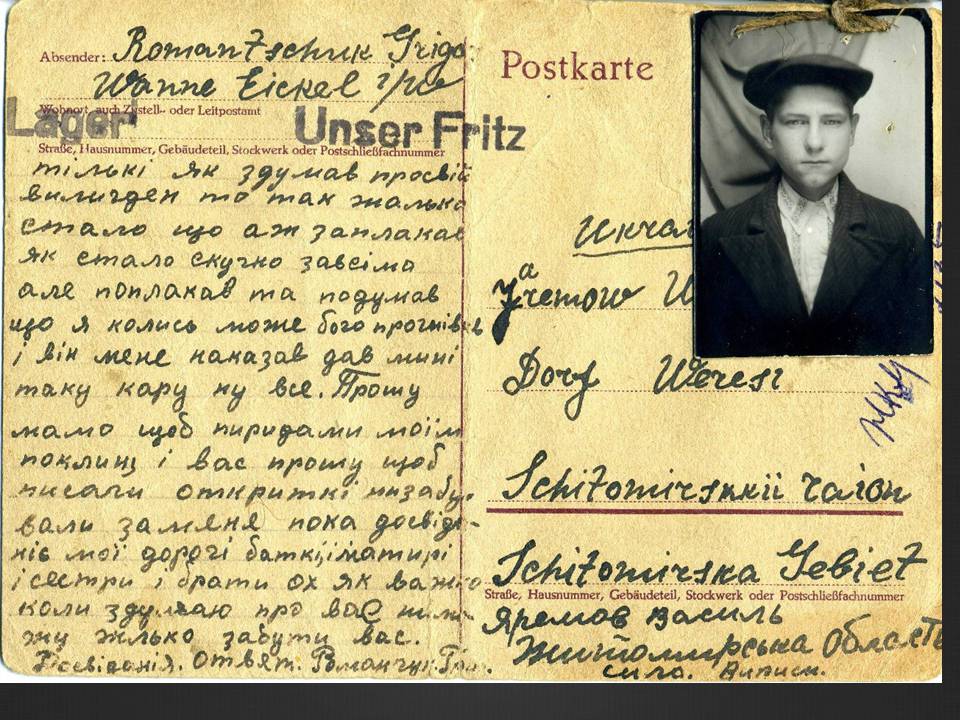 Absender: Romantschuk Grigo
Wanne Eickel
Wohnort, auch Zustell- oder Leitpostamt
Lager Unser Fritz
Straße, Hausnummer, Gebäudeteil, Stockwerk oder Postschließfachnummer
тількі як здумав про
виликден то так жалько
стало що аж заплакав
як стало скучно завсіма
але поплакав та подумав
що я колись може бога прогнівив
і він мене наказав дав мині
таку кару ну все. Прошу
мамо щоб пиридали моїм
поклин і вас прошу щоб
писали откриткі низабу-
вали замене пока досвіда-
ніє мої дорогі баткі і матирі
і сестри і брати ох як важко
коли здумаю про вас
жу жилько забути вас.
Досвіданія. Ответ. Романчук Гри.
Postkarte
Dorf Weresi
Schitomirskii raion
Schitomirska Gebiet
Straße, Hausnummer, Gebäudeteil, Stockwerk oder Postschließfachnummer
Яремов Василь
Житомирська Область
сило.